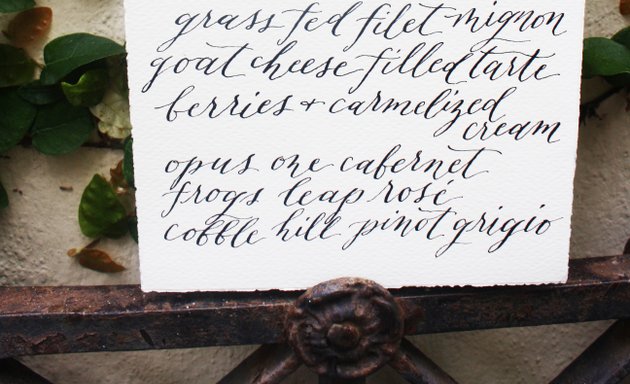 grass fed filet mignon
goat cheese filled tarte
berries + carmelized
cream
opus one cabernet
frogs leap rosé
cobble hill pinot grigio